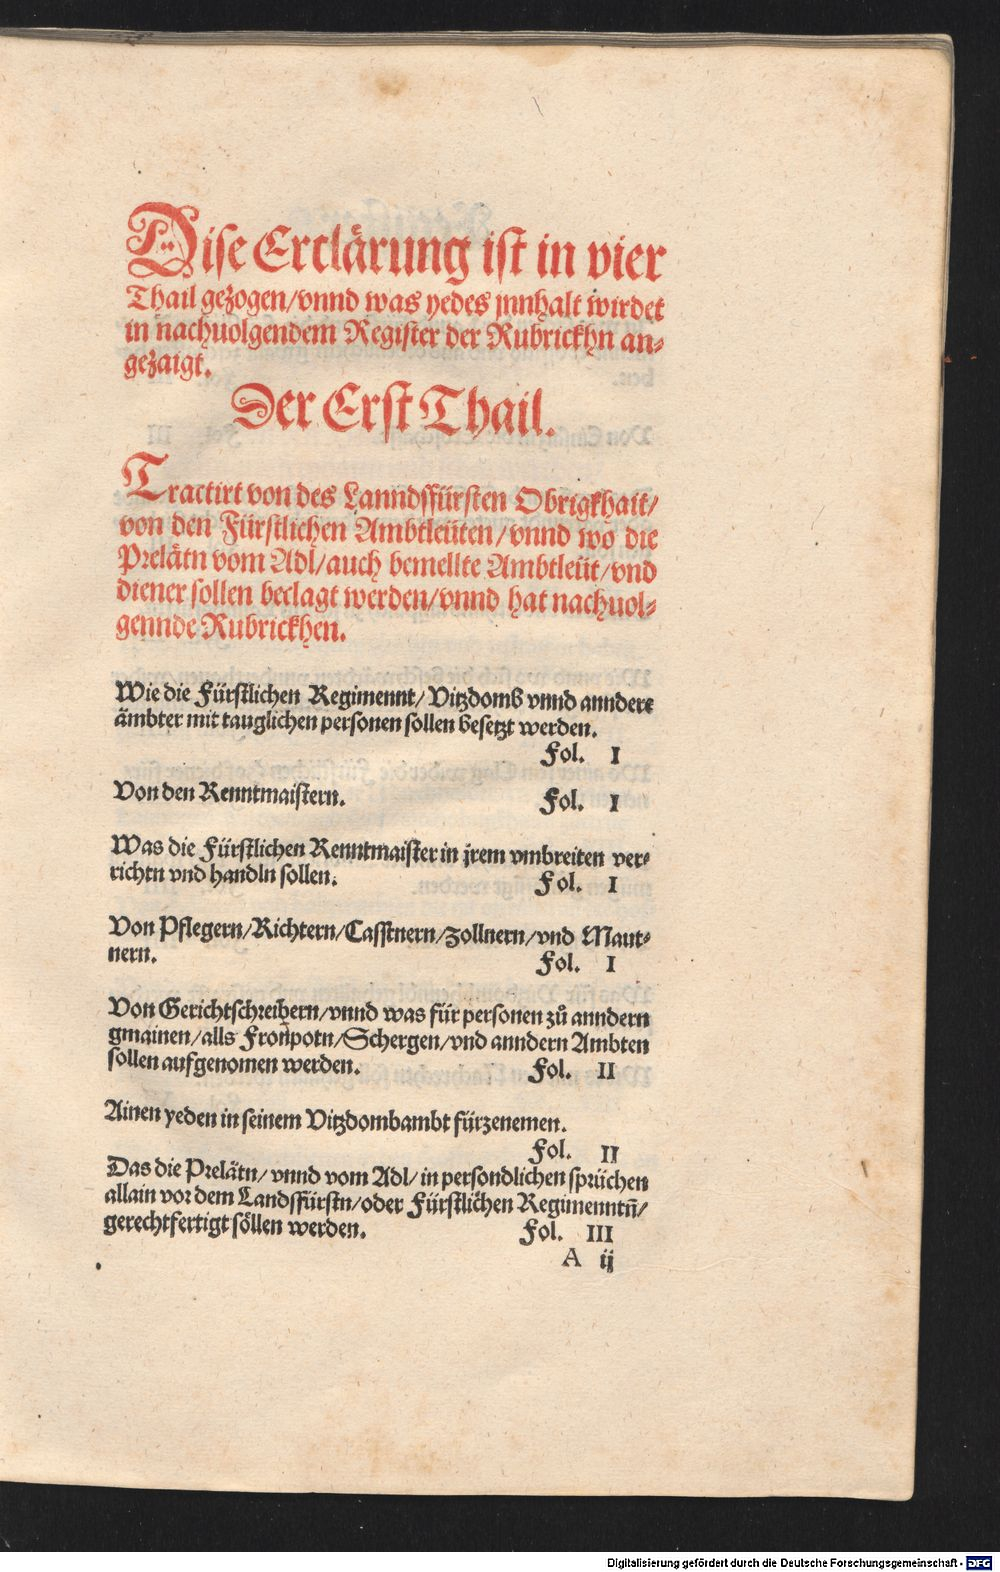 Dise Erclärung ist in vier
Thail gezogen/vnnd was yedes jnnhalt wirdet
in nachuolgendem Register der Rubrickhn an-
gezaigt.
Der Erst Thail.
Tractirt von des Lanndsfürsten Obrigkhait/
von den Fürstlichen Ambtleüten/vnnd wo die
Prelätn vom Adl/auch bemellte Ambtleüt/vnd
diener sollen beclagt werden/vnnd hat nachuol-
gennde Rubrickhen.
Wie die Fürstlichen Regimennt/Vitzdomb vnnd anndere
ämbter mit tauglichen personen sollen besetzt werden.
Fol. I
Von den Renntmaistern. Fol. I
Was die Fürstlichen Renntmaister in jrem vmbreiten ver-
richtn vnd handln sollen. Fol. I
Von Pflegern/Richtern/Casstnern/zollnern/vnd Maut-
nern. Fol. I
Von Gerichtschreibern/vnnd was für personen zů anndern
gmainen/alls Fronpotn/Schergen/vnd anndern Ambten
sollen aufgenomen werden. Fol. II
Ainen yeden in seinem Vitzdombambt fürzenemen.
Fol. II
Das die Prelätn/vnnd vom Adl/in persondlichen sprüchen
allain vor dem Landsfürstn/oder Fürstlichen Regimenntn̄/
gerechtfertigt söllen werden. Fol. III
A ij
Digitalisierung gefördert durch die Deutsche Forschungsgemeinschaft - DFG